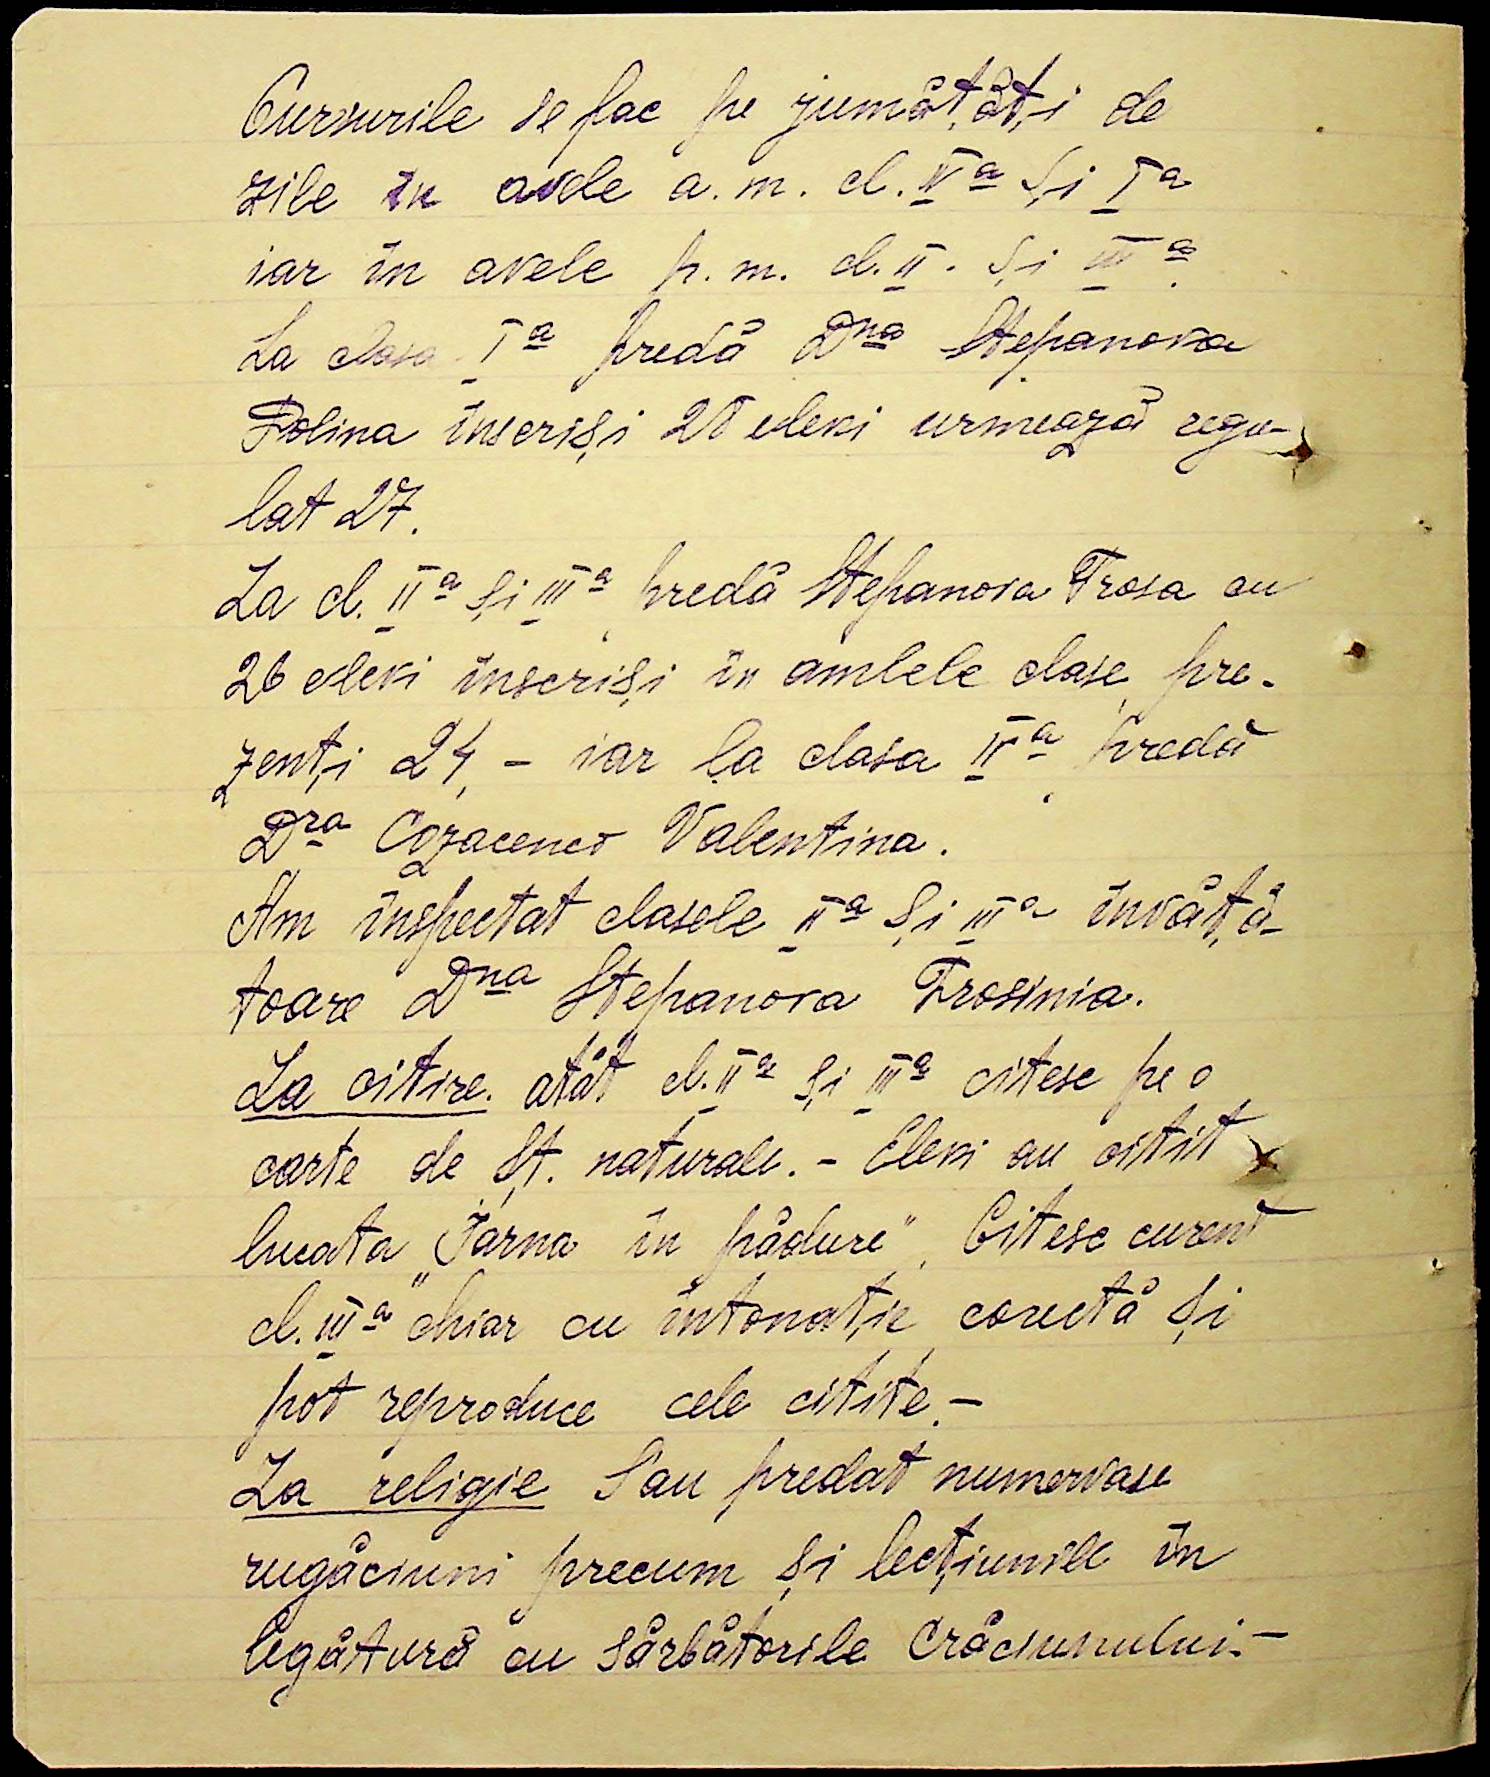 Cursurile se fac pe jumătăți de
zile în orele a.m. cl. IV a și I a
iar în orele p.m. cl. II. și III a.
La clasa I a predă Dna Stepanova
Polina înscriși 28 elevi urmează regu-
lat 27.
La cl. II a și III a predă Stepanova Frosa cu
26 elevi înscriși în ambele clase, pre-
zenți 24, - iar la clasa IV a predă
Dra Cozacenco Valentina.
Am inspectat clasele II a și III a învăță-
toare Dna Stepanova Frosinia.
La citire. atât cl. II a și III a citesc pe o
carte de Șt. naturale. - Elevi au citit
bucata „Iarna în pădure”. Citesc curent
cl. III a chiar cu intonație corectă și
pot reproduce cele citite. -
La religie Sau predat numeroase
rugăciuni precum și lecțiunile în
legătură cu sărbătorile Crăciunului. -